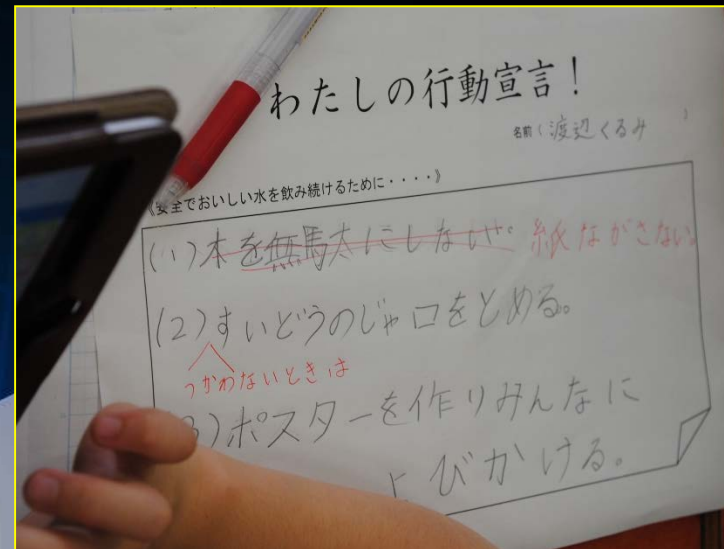 わたしの行動宣言！
名前（渡辺くるみ　）
《安全でおいしい水を飲み続けるために・・・・》
(1)本を無馬太にしない。紙ながさない。
(2)すいどうのじゃ口をとめる。
つかわないときは
3)ポスターを作りみんなに
よびかける。